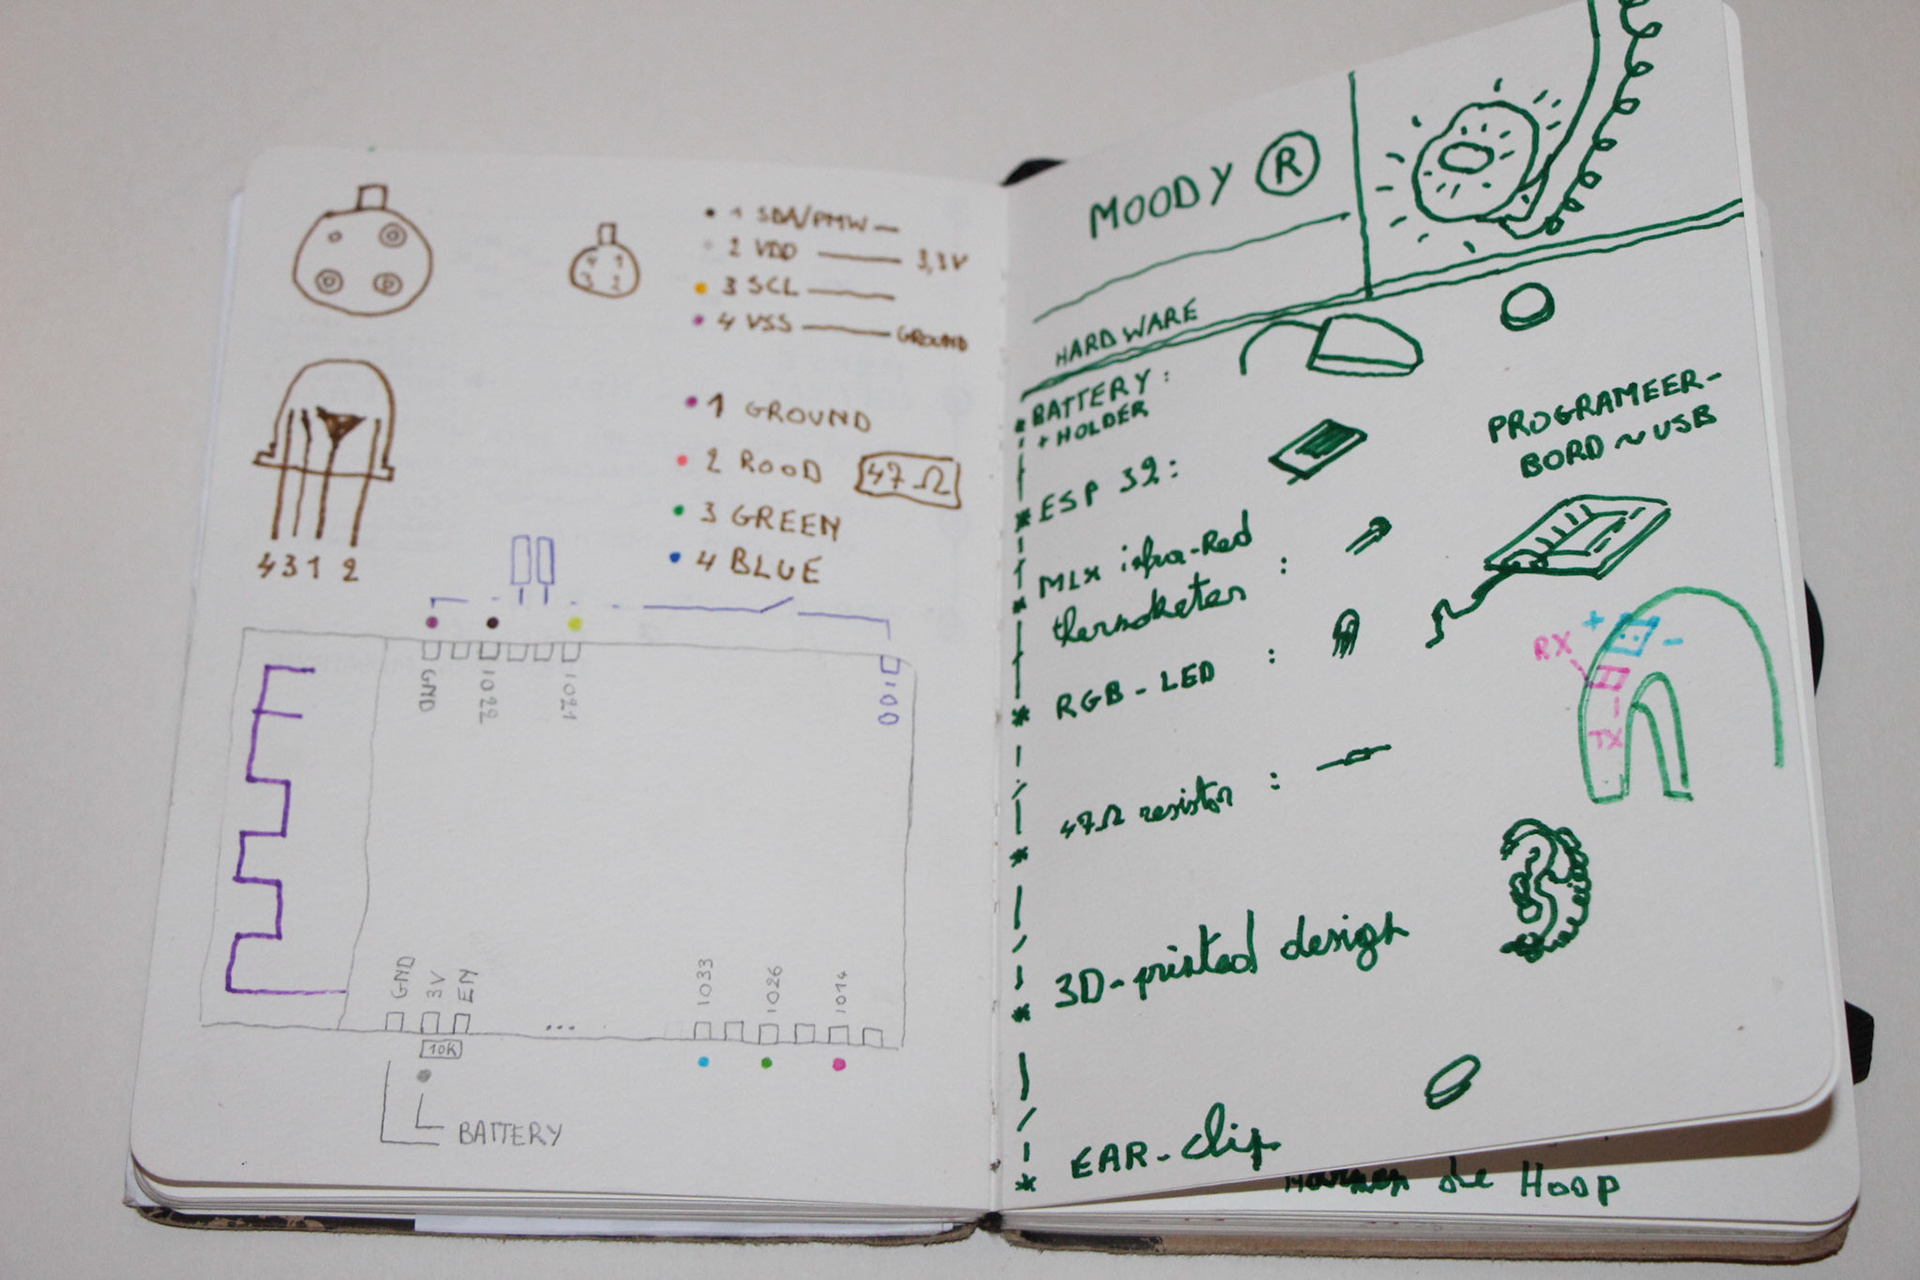 1 SDA/PMW
2 VDD 3,3V
3 SCL
4 VSS GROUND
4 1
3 2
1 GROUND
2 ROOD 47Ω
3 GREEN
4 BLUE
4 3 1 2
GND
IO22
IO21
IO0
GND
3V
EN
...
IO33
IO26
IO14
10K
BATTERY
MOODY ®
HARDWARE
* BATTERY:
+ HOLDER
* ESP 32:
PROGRAMEER-
BORD ~ USB
* MLX infra-Red :
* RGB-LED :
+ -
RX
TX
* 47Ω resistor :
* 3D-printed design
* EAR-clip
de Hoop